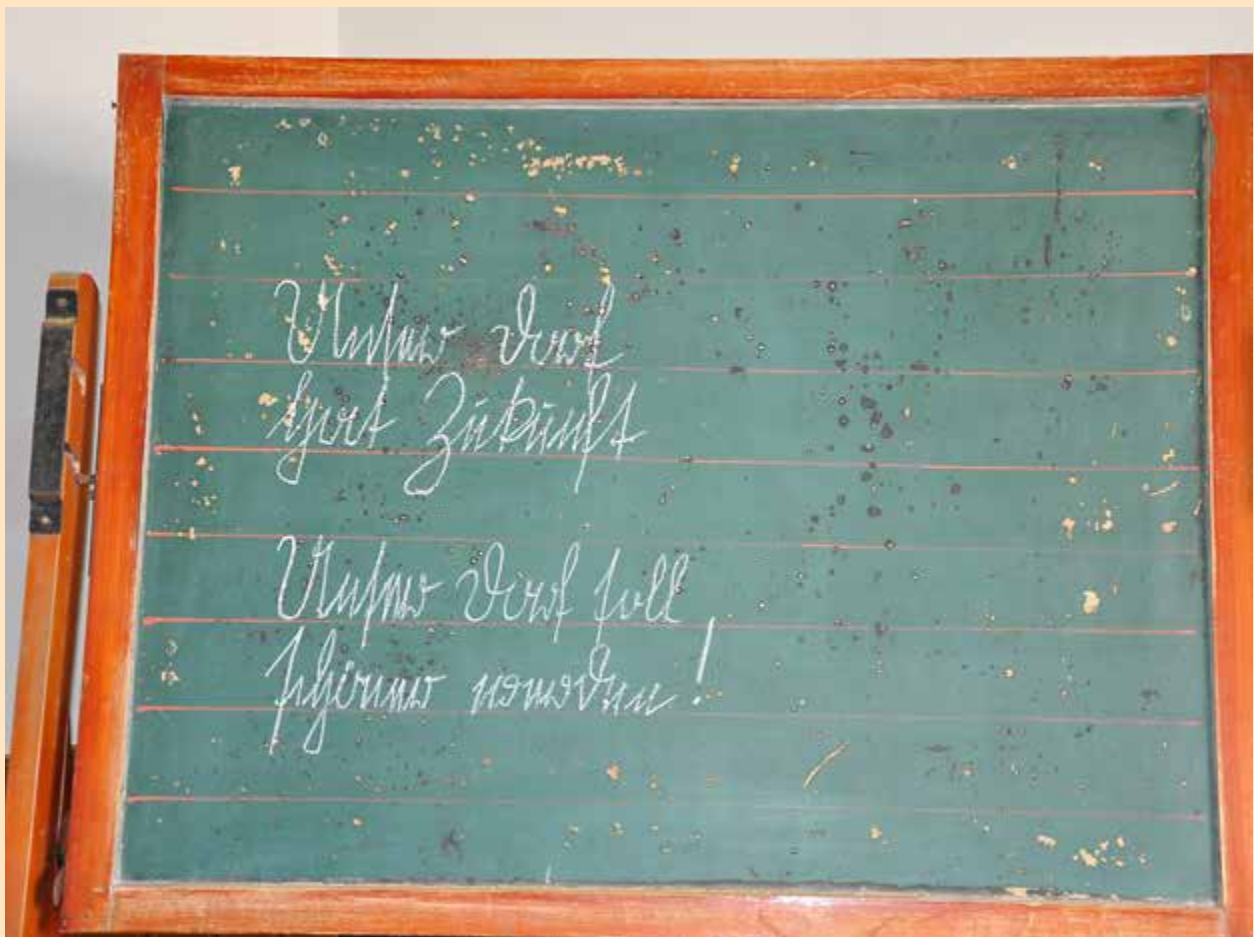 Unser Dorf
hat Zukunft
Unser Dorf soll
schöner werden!